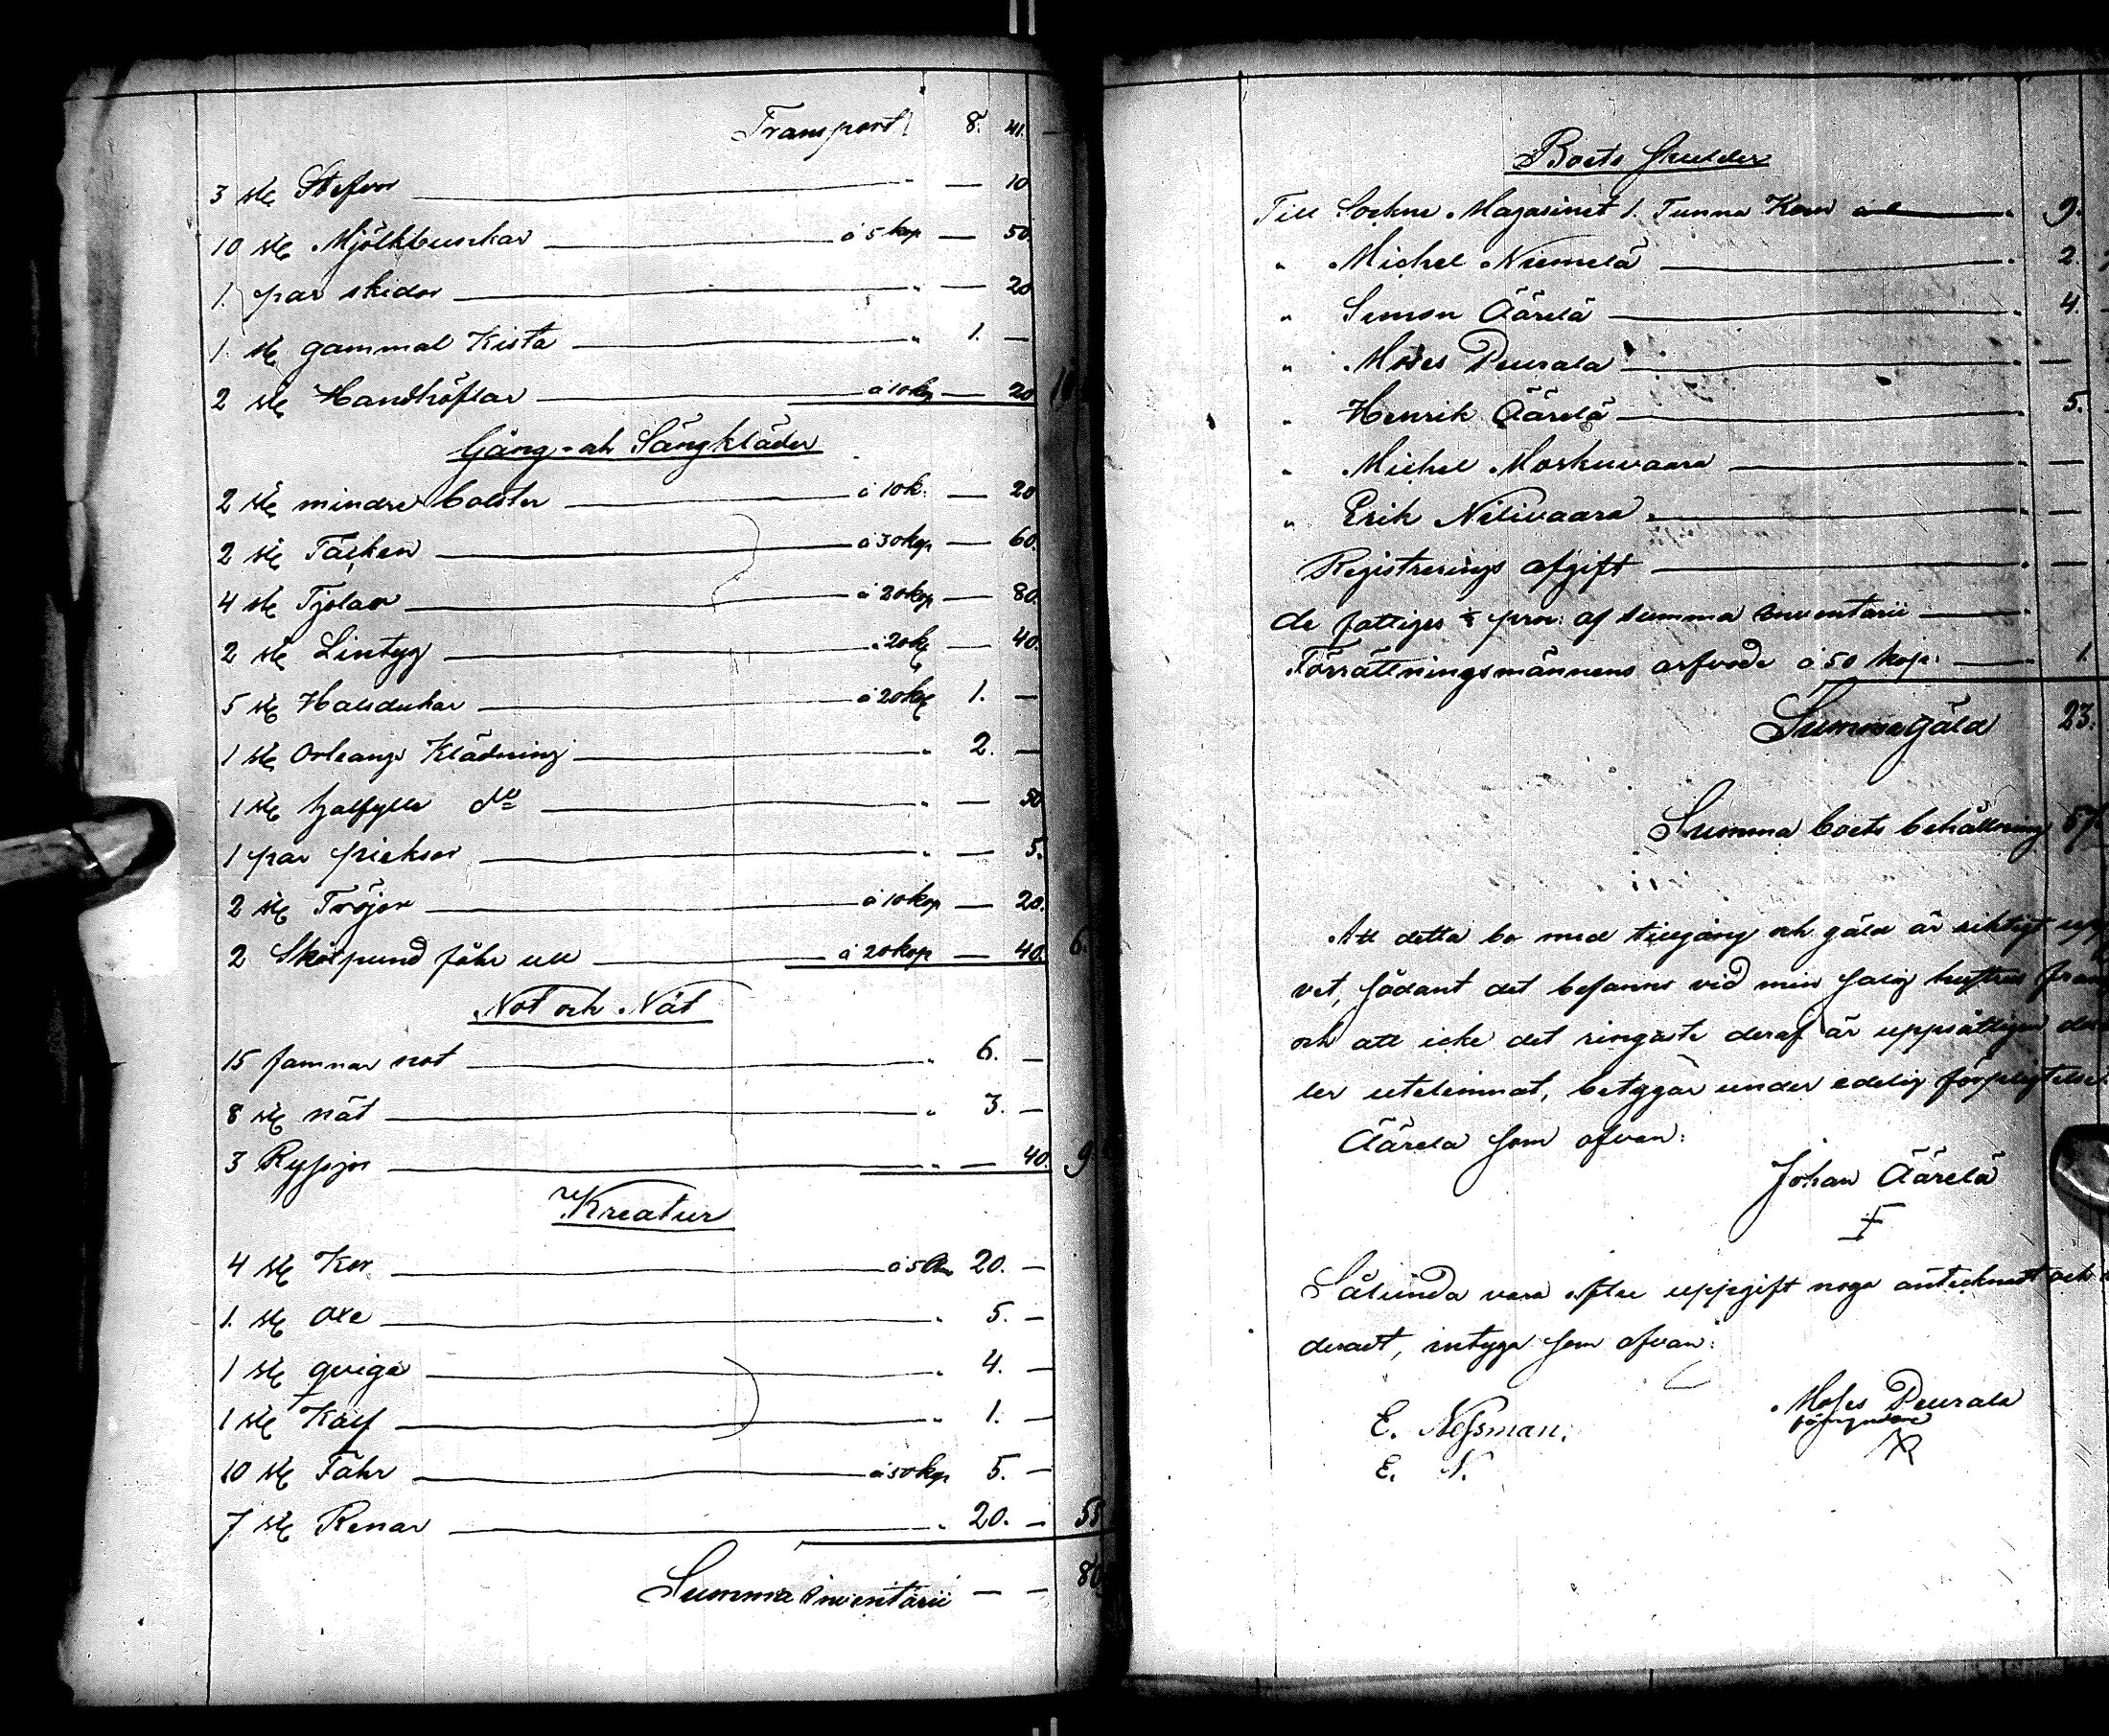 Transport 8. 41. —
3 st. Stefvor — 10
10 st. Mjölkbunkar à 5 kop — 50.
1. par skidor " — 20
1. st. gammal Kista " 1. —
2 st. Handhöflar à 10 kop — 20
Gång- och Sängkläder
2 st. mindre bolster à 10 k. — 20
2 st. Täcken à 30 kop — 60.
4 st. Tjolar à 20 kop — 80.
2 st. Lintyg à 20 k — 40.
5 st. Halsdukar à 20 kop 1. —
1 st. Orleangs Klädning " 2. —
1 st. halfylle do " — 50
1 par pieksor " — 5.
2 st. Tröjor à 10 kop — 20.
2 Skålpund fåhr ull à 20 kop — 40. 6.
Not och Nät
15 famnar not " 6. —
8 st. nät " 3. —
3 Ryssjor " — 40. 9
Kreatur
4 st. Kor à 5 Ru 20. —
1. st. oxe " 5. —
1 st. qviga " 4. —
1 st. Kalf " 1. —
10 st. Fåhr à 50 kop 5. —
7 st. Renar " 20. — 55
Summa Inventarii — — 80
Boets skulder
Till Sockne Magasinet 1. Tunna Korn 9.
" Michel Niemelä 2.
" Simon Äärelä 4.
" Moses Peurala —
" Henrik Äärelä 5.
" Michel Moskuvaara —
" Erik Nilivaara —
Registrerings afgift —
de fattiges proc. af summa Inventarii
Förrättningsmännens arfvode à 50 kop. 1.
Summa Gäld 23.
Summa boets behållning 57.
Att detta bo med tillgång och gäld är riktigt upp
vet, sådant det befanns vid min salig hustrus från
och att icke det ringaste deraf är uppsåtligen
ler utelemnat, betygar under edelig förpligtelse
Äärelä som ofvan:
Johan Äärelä
Sålunda vara efter uppgift noga antecknadt och
deradt, intyga som ofvan:
E. Nessman.
E. N.
Moses Peurala